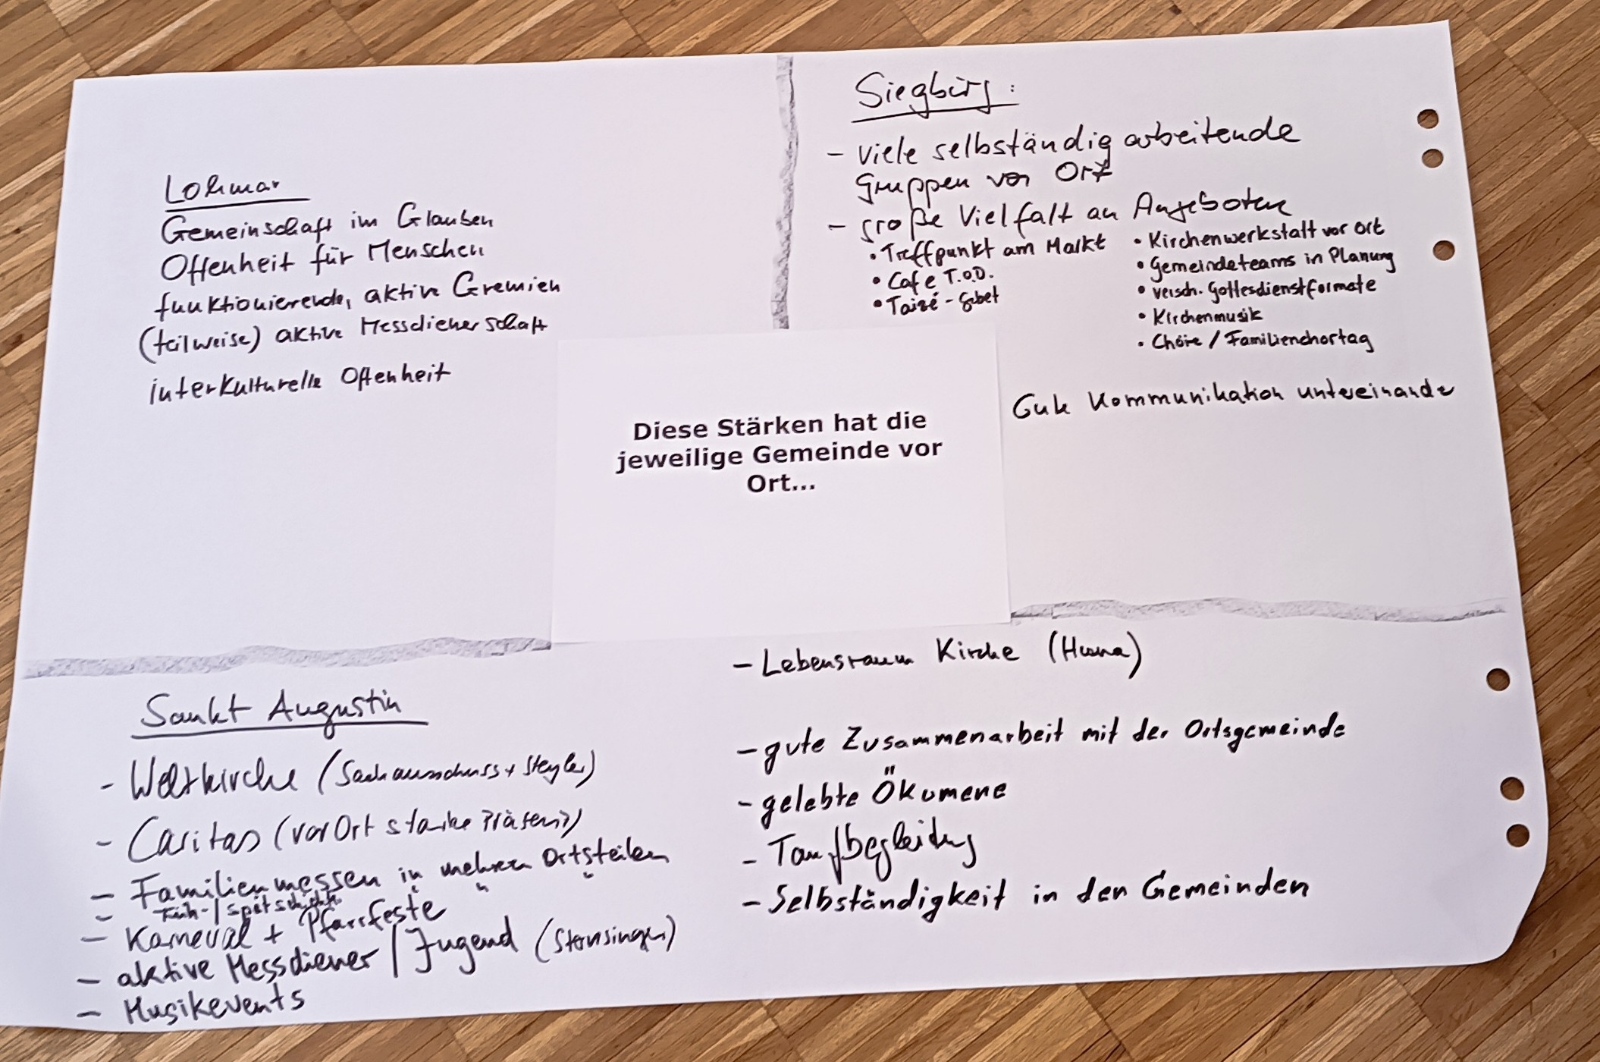 Lohmar
Gemeinschaft im Glauben
Offenheit für Menschen
funktionierende, aktive Gremien
(teilweise) aktive Messdienerschaft
interkulturelle Offenheit
Siegburg:
- viele selbständig arbeitende
Gruppen vor Ort
- große Vielfalt an Angeboten
• Treffpunkt am Markt
• Cafe T.O.D.
• Taizé-Gebet
• Kirchenwerkstatt vor Ort
• Gemeindeteams in Planung
• versch. Gottesdienstformate
• Kirchenmusik
• Chöre / Familienchortag
Gute Kommunikation untereinander
Diese Stärken hat die
jeweilige Gemeinde vor
Ort...
Sankt Augustin
- Weltkirche (Sachausschuss + Steyler)
- Caritas (vor Ort starke Präsenz)
- Familienmessen in mehren Ortsteilen
- Früh-/Spätschicht " " "
- Karneval + Pfarrfeste
- aktive Messdiener / Jugend (Sternsinger)
- Musikevents
- Lebensraum Kirche (Huma)
- gute Zusammenarbeit mit der Ortsgemeinde
- gelebte Ökumene
- Taufbegleitung
- Selbständigkeit in den Gemeinden